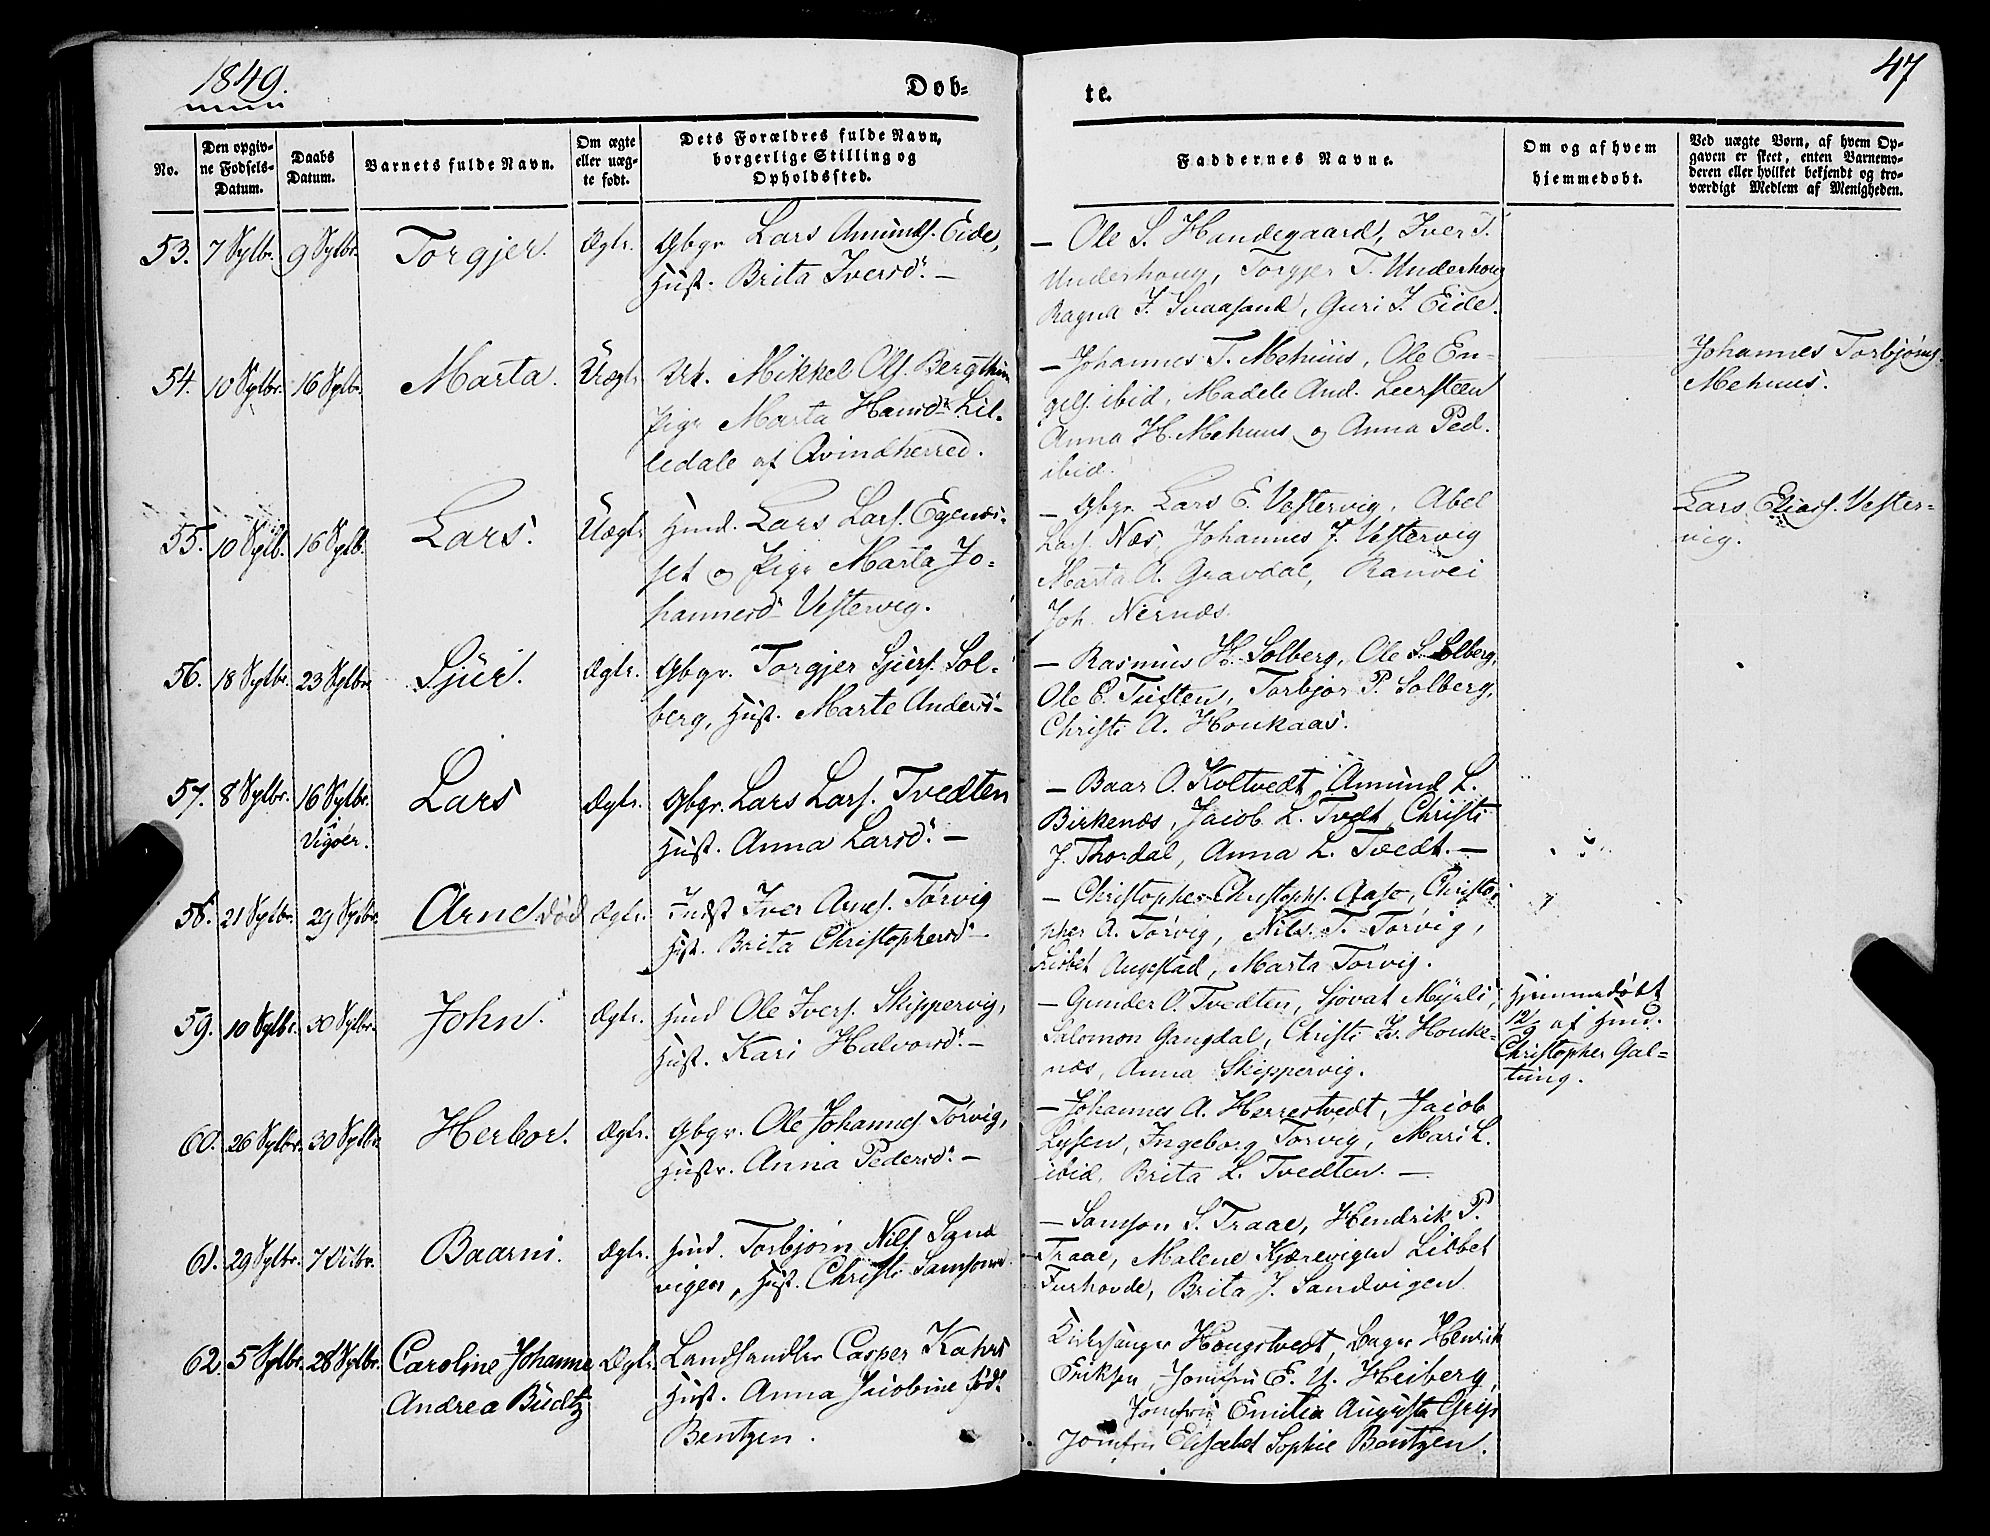 1849.
Døb-
te.
47
No.
Den opgiv-
ne Fødsels-
Datum.
Daabs
Datum.
Barnets fulde Navn.
Om ægte
eller uæg-
te født.
Dets Forældres fulde Navn,
borgerlige Stilling og
Opholdssted.
Faddernes Navne.
Om og af hvem
hjemmedøbt.
Ved uægte Børn, af hvem Op-
gaven er skeet, enten Barnemo-
deren eller hvilket bekjendt og tro-
værdigt Medlem af Menigheden.
53. 7 Sptbr. 9 Sptbr. Torgjer. Ægte. Gbgr. Lars Amunds. Eide,
Hust. Brita Iversd. —
— Ole S. Handegaard, Iver T.
Underhoug, Torgjer T. Underhoug
Ragna J. Svaasand, Guri J. Eide.
54. 10 Sptbr. 16 Sptbr. Marta. Uægte Mikkel Ols. Bergthun
Pige Marta Hansd. Lil-
ledale af Qvindherred.
— Johannes T. Mehuus, Ole En-
gels. ibid, Madele And. Leersteen
Anna H. Mehuus og Anna Ped.
ibid.
Johannes Torbjørns.
Mehuus.
55. 10 Sptb. 16 Sptb. Lars. Uægte Hmd. Lars Lars. Egenæs-
set og Pige Marta Jo-
hannesd. Vestervig.
— Gbgr. Lars E. Vestervig, Abel
Lars. Næs, Johannes J. Vestervig
Marta A. Gravdal, Ranvei
Joh. Nernæs.
Lars Elias. Vester-
vig.
56. 18 Sptbr. 23 Sptbr. Sjur. Ægte. Gbgr. Torgjer Sjurs. Sol-
berg, Hust. Marte Andersd.
— Rasmus H. Solberg, Ole S. Solberg,
Ole E. Tuften, Torbjør P. Solberg,
Christi A. Houkaas.
57. 8 Sptbr. 16 Sptbr. Lars Ægte. Gbgr. Lars Lars. Tvedten
Vigøer. Hust. Anna Larsd. —
— Baar O. Koltvedt, Amund L.
Birkenæs, Jacob L. Tvedt, Christi
J. Thordal, Anna L. Tvedt. —
58. 21 Sptbr. 29 Sptbr. Arne død Ægte. Indst Iver Arnes. Tørvig
Hust. Brita Christophersd. —
— Christopher Christophs. Aase, Christo-
pher A. Tørvig, Nils T. Tørvig,
Lisbet Augestad, Marta Torvig.
59. 10 Sptbr. 30 Sptbr. John. Ægte. Hmd Ole Ivers. Skippervig,
Hust. Kari Halvorsd. —
— Gunder O. Tvedten, Sjovat Myrli,
Salomon Gangdal, Christi Iv. Houke-
næs, Anna Skippervig.
Hjemmedøbt
12/9 af Hmd.
Christopher Gal-
tung.
60. 26 Sptbr. 30 Sptbr. Herbor. Ægte. Gbgr. Ole Johannes. Tørvig,
Hustr. Anna Pedersd. —
— Johannes A. Herrestvedt, Jacob
Lysen, Ingeborg Torvig, Mari L.
ibid, Brita L. Tvedten. —
61. 29 Sptbr. 7 Octbr. Baarni. Ægte. Hmd. Torbjørn Nils Sand
vigen, Hust. Christi Samsonsd.
— Samson S. Traae, Hendrik P.
Traae, Malene Kjærevigen Lisbet
Furhovde, Brita J. Sandvigen
62. 5 Sptbr. 28 Sptbr. Caroline Johanne Ægte. Landhandler Casper Kahrs
Andrea Büdtz Hust. Anna Jacobine født
Bentzen.
Kirkesanger Hougstvedt, Henrik
Eriksen Jomfru E. U. Heiberg,
Jomfru Emilia Augusta Grip
Jomfru Elisabet Sophie Bentzen.